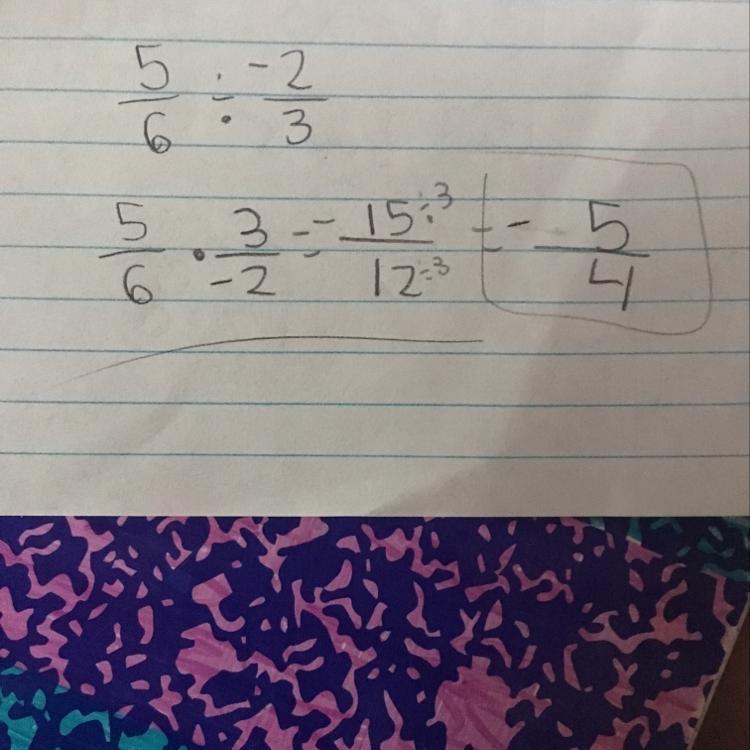 5/6 ÷ -2/3
5/6 · 3/-2 = - 15÷3/12÷3 = - 5/4